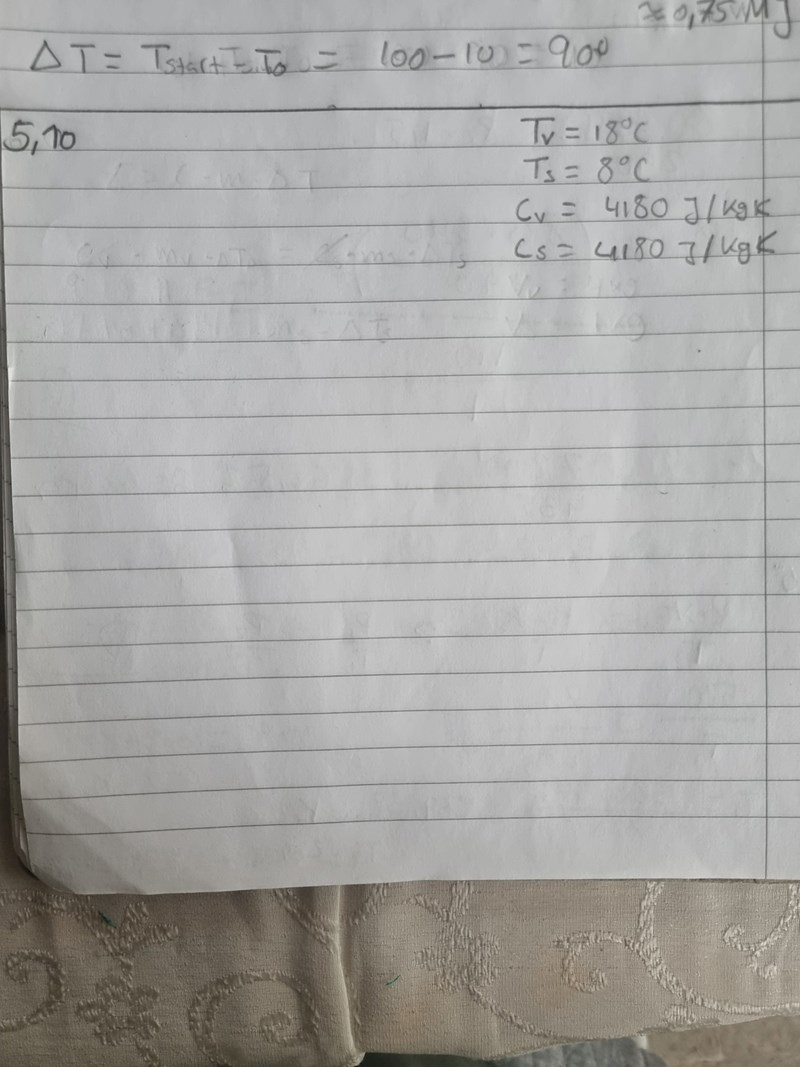 ≈ 0,75 MJ
ΔT = Tstart - T0 = 100-10 = 90°
5,10
Tv = 18°C
Ts = 8°C
Cv = 4180 J/kgK
Cs = 4180 J/kgK